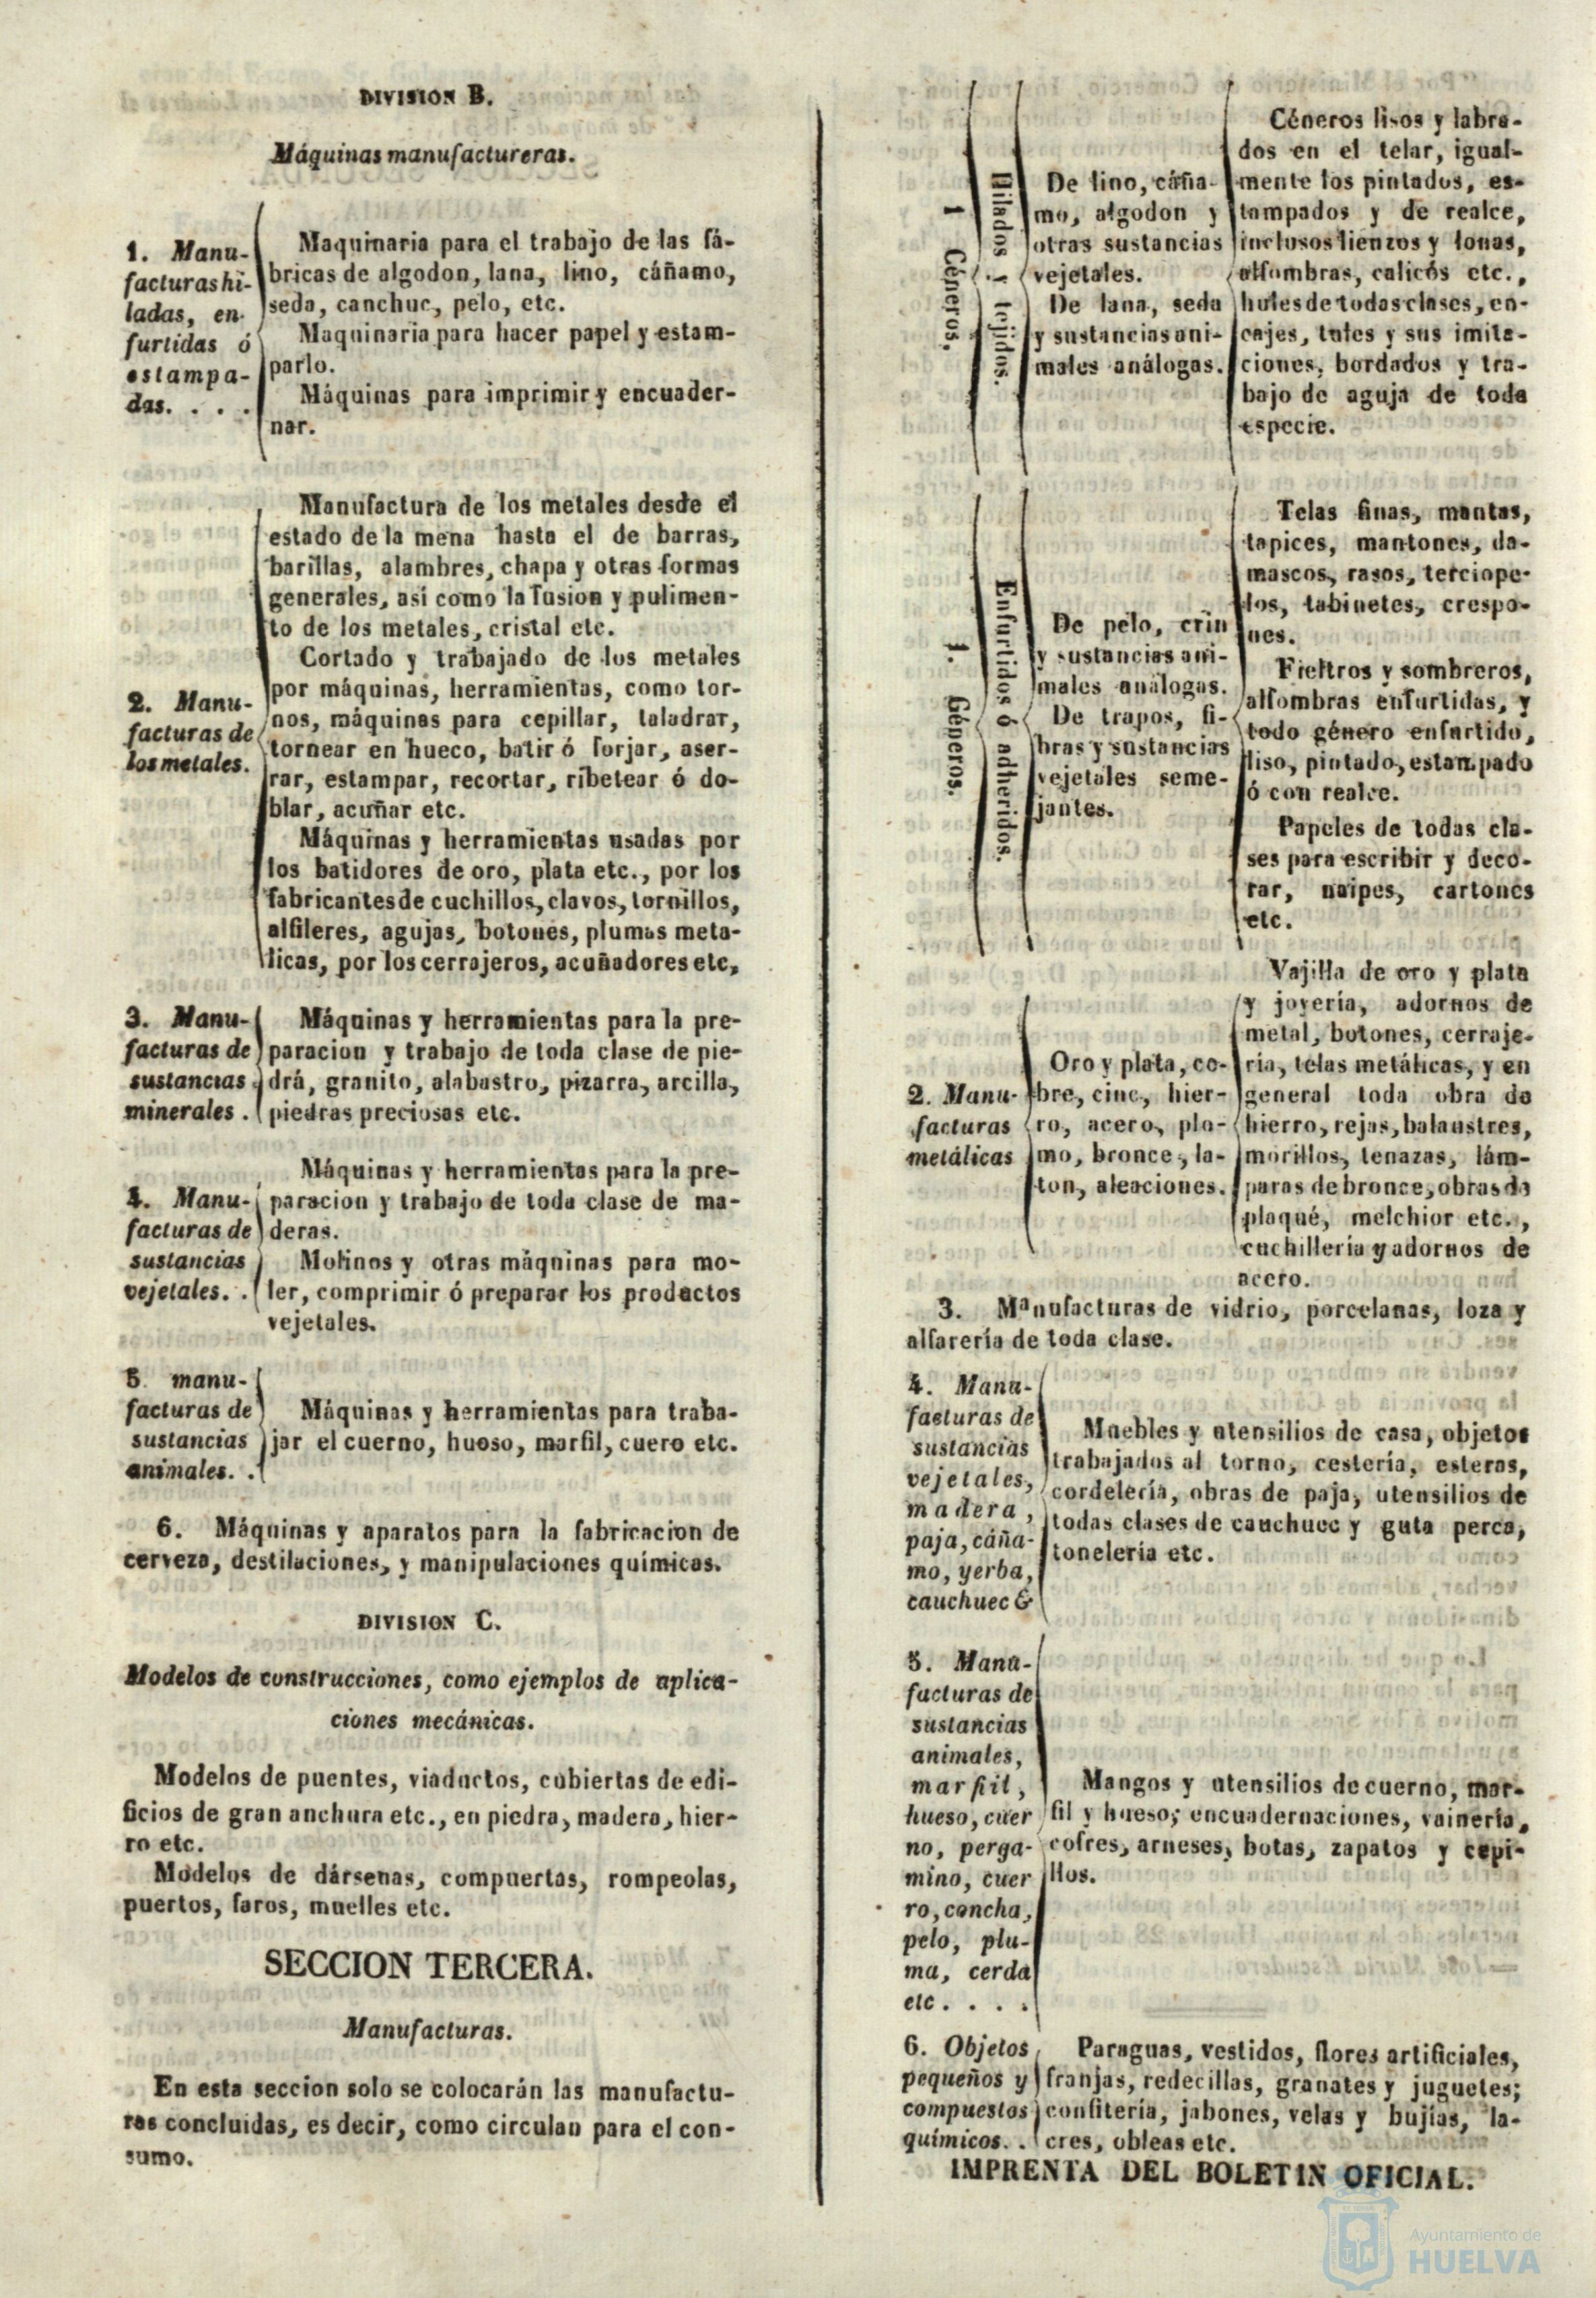 DIVISION B.
Máquinas manufactureras.
1. Manu-
facturas hi-
ladas, en-
furtidas ó
estampa-
das. . . .
Maquinaria para el trabajo de las fá-
bricas de algodon, lana, lino, cáñamo,
seda, canchuc, pelo, etc.
Maquinaria para hacer papel y estam-
parlo.
Máquinas para imprimir y encuader-
nar.
2. Manu-
facturas de
los metales.
Manufactura de los metales desde el
estado de la mena hasta el de barras,
barillas, alambres, chapa y otras formas
generales, asi como la fusion y pulimen-
to de los metales, cristal etc.
Cortado y trabajado de los metales
por máquinas, herramientas, como tor-
nos, máquinas para cepillar, taladrar,
tornear en hueco, batir ó forjar, aser-
rar, estampar, recortar, ribetear ó do-
blar, acuñar etc.
Máquinas y herramientas usadas por
los batidores de oro, plata etc., por los
fabricantes de cuchillos, clavos, tornillos,
alfileres, agujas, botones, plumas meta-
licas, por los cerrajeros, acuñadores etc,
3. Manu-
facturas de
sustancias
minerales .
Máquinas y herramientas para la pre-
paracion y trabajo de toda clase de pie-
drá, granito, alabastro, pizarra, arcilla,
piedras preciosas etc.
4. Manu-
facturas de
sustancias
vejetales. .
Máquinas y herramientas para la pre-
paracion y trabajo de toda clase de ma-
deras.
Molinos y otras máquinas para mo-
ler, comprimir ó preparar los productos
vejetales.
5 manu-
facturas de
sustancias
animales. .
Máquinas y herramientas para traba-
jar el cuerno, hueso, marfil, cuero etc.
6. Máquinas y aparatos para la fabricacion de
cerveza, destilaciones, y manipulaciones químicas.
DIVISION C.
Modelos de construcciones, como ejemplos de aplica-
ciones mecánicas.
Modelos de puentes, viaductos, cubiertas de edi-
ficios de gran anchura etc., en piedra, madera, hier-
ro etc.
Modelos de dársenas, compuertas, rompeolas,
puertos, faros, muelles etc.
SECCION TERCERA.
Manufacturas.
En esta seccion solo se colocarán las manufactu-
ras concluidas, es decir, como circulan para el con-
sumo.
1 Géneros.
Hilados y tejidos.
De lino, cáña-
mo, algodon y
otras sustancias
vejetales.
De lana, seda
y sustancias ani-
males análogas.
Céneros lisos y labra-
dos en el telar, igual-
mente los pintados, es-
tampados y de realce,
inclusos lienzos y lonas,
alfombras, calicós etc.,
hules de todas clases, en-
cajes, tules y sus imita-
ciones, bordados y tra-
bajo de aguja de toda
especie.
1. Géneros.
Enfurtidos ó adheridos.
De pelo, crin
y sustancias ani-
males análogas.
De trapos, fi-
bras y sustancias
vejetales seme-
jantes.
Telas finas, mantas,
tapices, mantones, da-
mascos, rasos, terciope-
los, tabinetes, crespo-
nes.
Fieltros y sombreros,
alfombras enfurtidas, y
todo género enfurtido,
liso, pintado, estampado
ó con realce.
Papeles de todas cla-
ses para escribir y deco-
rar, naipes, cartones
etc.
2. Manu-
facturas
metálicas
Oro y plata, co-
bre, cinc, hier-
ro, acero, plo-
mo, bronce, la-
ton, aleaciones.
Vajilla de oro y plata
y joyería, adornos de
metal, botones, cerraje-
ria, telas metálicas, y en
general toda obra de
hierro, rejas, balaustres,
morillos, tenazas, lám-
paras de bronce, obras de
plaqué, melchior etc.,
cuchillería y adornos de
acero.
3. Manufacturas de vidrio, porcelanas, loza y
alfarería de toda clase.
4. Manu-
facturas de
sustancias
vejetales,
madera,
paja, cáña-
mo, yerba,
cauchuec &
Muebles y utensilios de casa, objetos
trabajados al torno, cestería, esteras,
cordelería, obras de paja, utensilios de
todas clases de cauchuec y guta perca,
tonelería etc.
5. Manu-
facturas de
sustancias
animales,
marfil,
hueso, cuer
no, perga-
mino, cuer
ro, concha,
pelo, plu-
ma, cerda
etc . . . .
Mangos y utensilios de cuerno, mar-
fil y hueso; encuadernaciones, vainería,
cofres, arneses, botas, zapatos y cepi-
llos.
6. Objetos
pequeños y
compuestos
químicos. .
Paraguas, vestidos, flores artificiales,
franjas, redecillas, granates y juguetes;
confitería, jabones, velas y bujías, la-
cres, obleas etc.
IMPRENTA DEL BOLETIN OFICIAL.
Ayuntamiento de
HUELVA